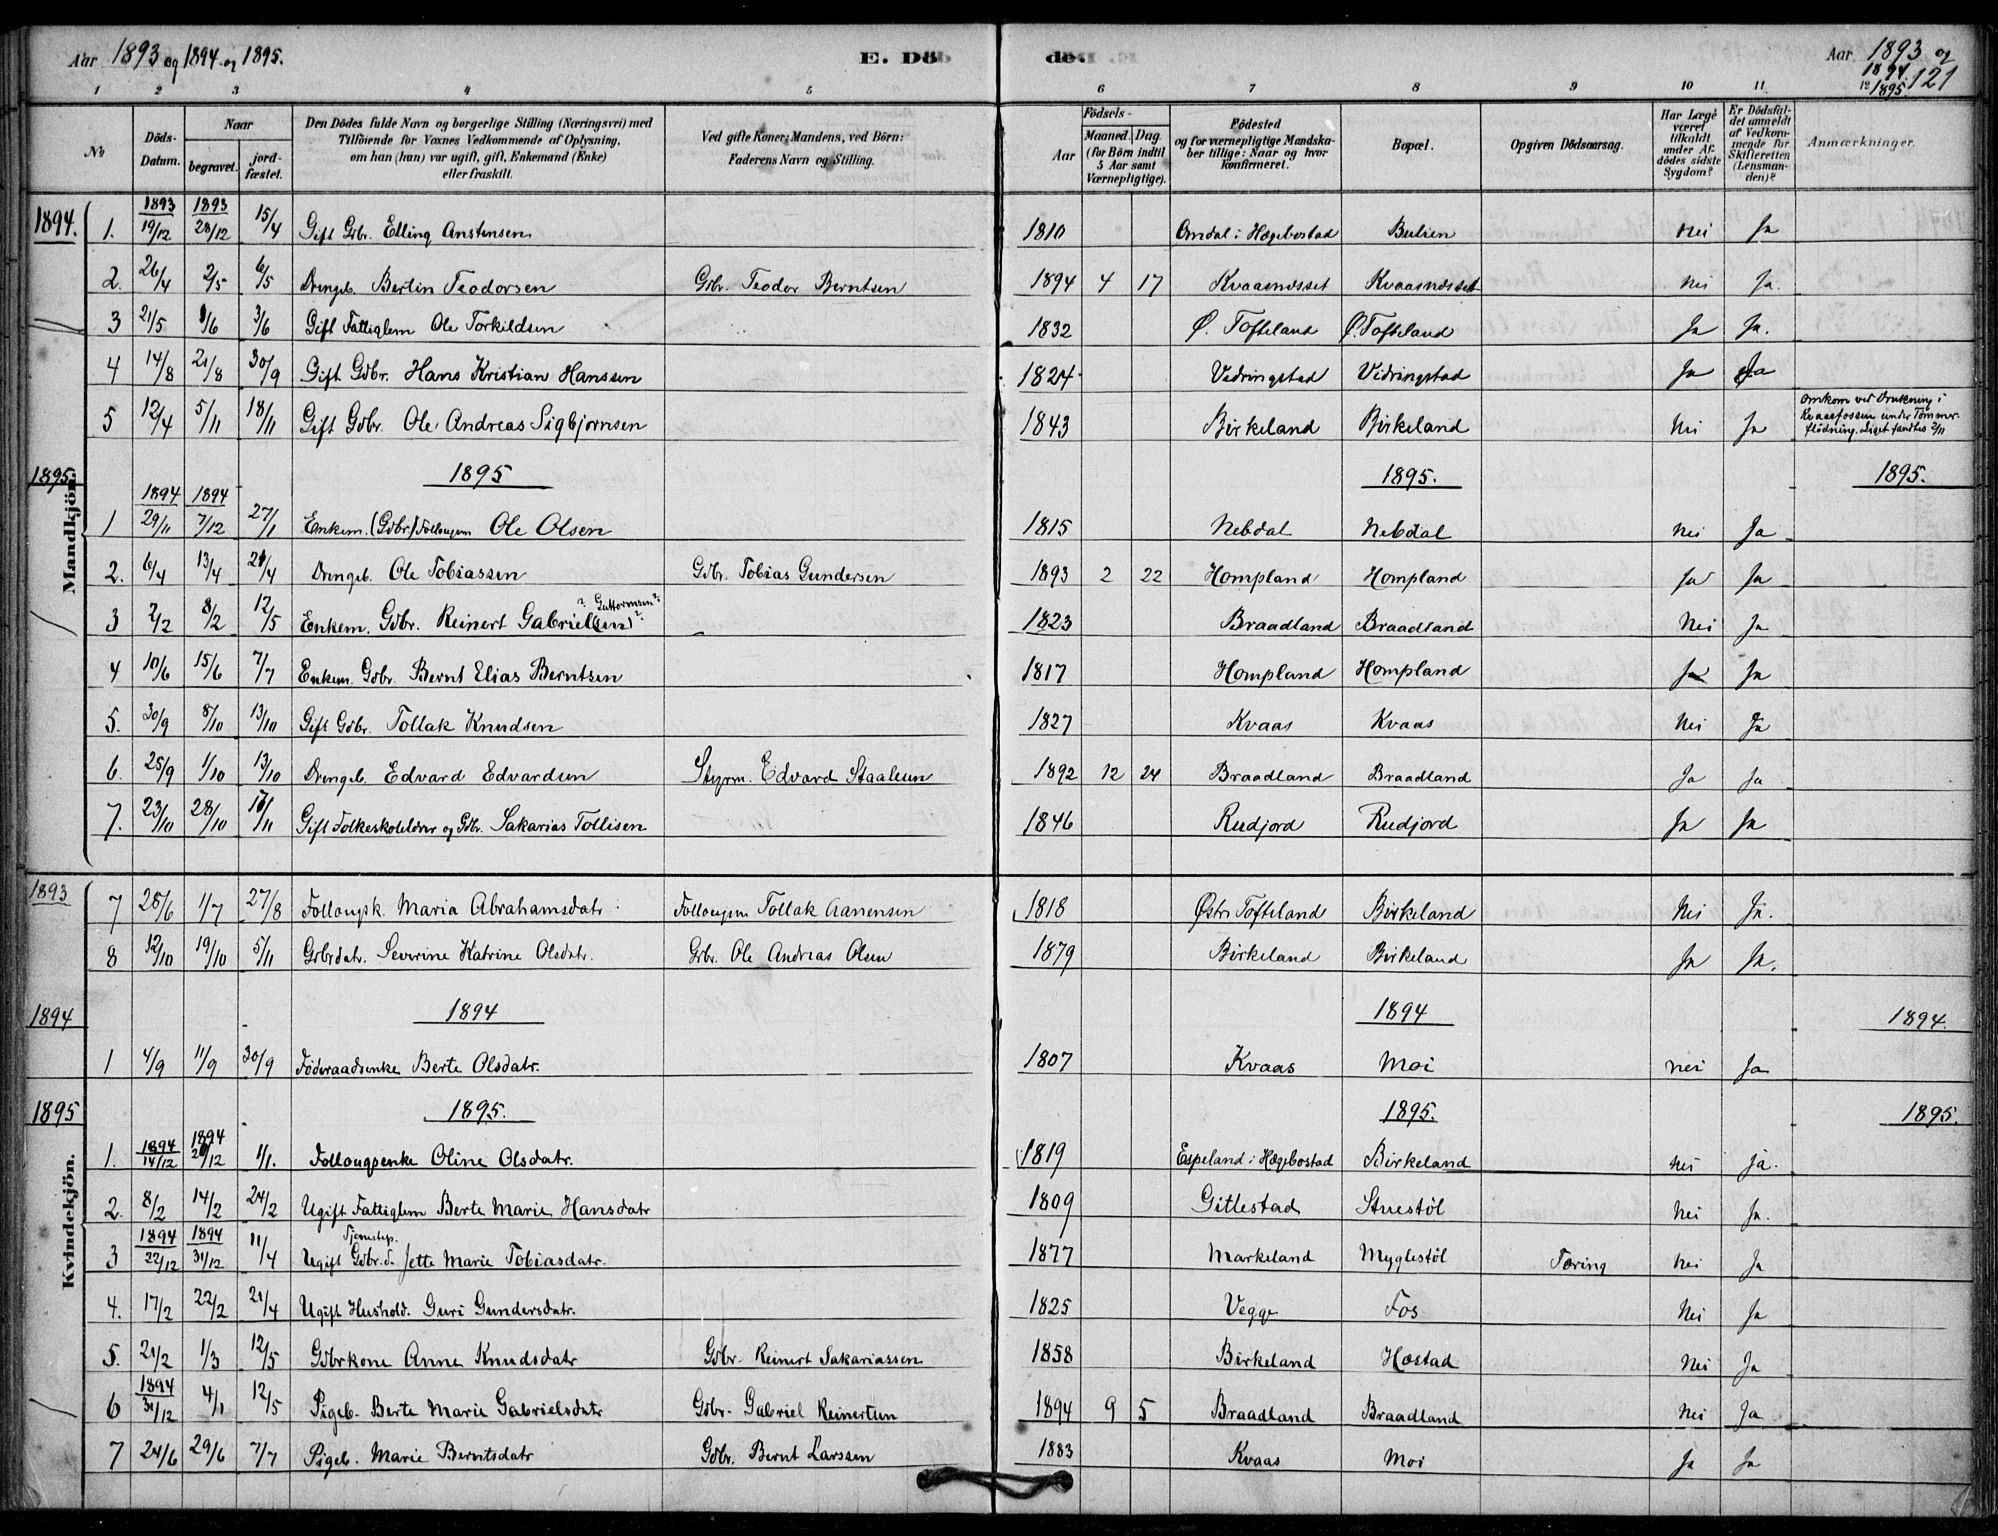 Aar 1893 og 1894 og 1895. E. Dö de. Aar 1893 og 1894 1895. 121
1 2 3 4 5 6 7 8 9 10 11 12
No
Döds-Datum.
Naar
begravet.
jord-fæstet.
Den Dödes fulde Navn og borgerlige Stilling (Næringsvei) med
Tilföiende for Voxnes Vedkommende af Oplysning,
om han (hun) var ugift, gift, Enkemand (Enke)
eller fraskilt.
Ved gifte Koner: Mandens, ved Börn:
Faderens Navn og Stilling.
Födsels-
Aar
Maaned. Dag.
(for Börn indtil
5 Aar samt
Værnepligtige).
Födested
og for værnepligtige Mandska-
ber tillige: Naar og hvor
konfirmeret.
Bopæl.
Opgiven Dödsaarsag.
Har Læge
været
tilkaldt
under Af-
dödes sidste
Sygdom?
Er Dödsfal-
det anmeldt
af Vedkom-
mende for
Skifteretten
(Lensman-
den)?
Anmærkninger.
Mandkjön.
1894.
1. 1893 19/12 1893 28/12 15/4 Gift Gbr. Elling Anstensen 1810 Omdal i Hægebostad Bulien nei Ja
2. 26/4 2/5 6/5 Drengeb. Bertin Teodorsen Gbr. Teodor Berntsen 1894 4 17 Kvaasnæsset Kvaasnæsset nei Ja.
3 21/5 1/6 3/6 Gift Fattiglem Ole Torkildsen 1832 Ø. Tofteland Ø. Tofteland Ja Ja.
4 14/8 21/8 30/9 Gift Gdbr. Hans Kristian Hanssen 1824 Vedringstad Vidringstad Ja Ja
5 12/4 5/11 18/11 Gift Gdbr. Ole Andreas Sigbjørnsen 1843 Birkeland Birkeland Nei Ja Omkom ved Drukning i
Kvaasfossen under Tømmer-
flødning. Liget fandtes 2/11
1895. 1895 1895. 1895.
1 1894 29/11 1894 7/12 27/1 Enkem. (Gdbr.) Follougsm Ole Olsen 1815 Nebdal Nebdal nei Ja
2. 6/4 13/4 21/4 Drengeb. Ole Tobiassen Gdbr. Tobias Gundersen 1893 2 22 Hompland Hompland Ja Ja
3 2/2 8/2 12/5 Enkem. Gdbr. Reinert Gabrielsen? ?Guttormsen? 1823 Braadland Braadland Nei Ja
4 10/6 15/6 7/7 Enkem. Gdbr. Bernt Elias Berntsen 1817 Hompland Hompland Ja Ja
5. 30/9 8/10 13/10 Gift Gdbr. Tollak Knudsen 1827 Kvaas Kvaas Nei Ja
6. 25/9 1/10 13/10 Drengeb. Edvard Edvardsen Styrm. Edvard Staalesen 1892 12 24 Braadland Braadland Ja Ja
7. 23/10 28/10 /11 Gift Folkeskolelærer og Gdbr. Sakarias Tollisen 1846 Rudjord Rudjord Ja Ja
Kvindekjön.
1893
7 25/6 1/7 27/8 Follougsk. Maria Abrahamsdatr. Follougsm Tollak Aanensen 1818 Østr. Tofteland Birkeland Nei Ja.
8 12/10 19/10 5/11 Gdbrdatr. Severine Katrine Olsdatr. Gdbr. Ole Andreas Olsen 1879 Birkeland Birkeland Ja Ja.
1894 1894 1894 1894.
1 4/9 11/9 30/9 Føderaadsenke Berte Olsdatr. 1807 Kvaas Moi nei Ja
1895 1895. 1895. 1895.
1. 1894 14/12 1894 20/12 1/1. Follougsenke Oline Olsdatr. 1819 Espeland i Hægebostad Birkeland nei ja.
2. 8/2 14/2 24/2 Ugift Fattiglem Berte Marie Hansdatr 1809 Gitlestad Stuestøl Nei Ja.
3 1894 22/12 1894 31/12 11/4 Ugift Tjenestep. Gdbr.d. Jette Marie Tobiasdatr. 1877 Markeland Myglestøl Tæring Nei Ja
4. 17/2 22/2 21/4 Ugift Hushold. Guri Gundersdatr. 1825 Vegge Fos Nei Ja
5. 21/2 1/3 12/5 Gdbrkone Anne Knudsdatr Gdbr. Reinert Sakariassen 1858 Birkeland Høstad Nei Ja
6 1894 31/12 4/1 12/5 Pigeb. Berte Marie Gabrielsdatr Gdbr. Gabriel Reinertsen 1894 9 5 Braadland Braadland Nei Ja
7 24/6 29/6 7/7 Pigeb. Marie Berntsdatr Gdbr. Bernt Larssen 1883 Kvaas Moi Ja Ja